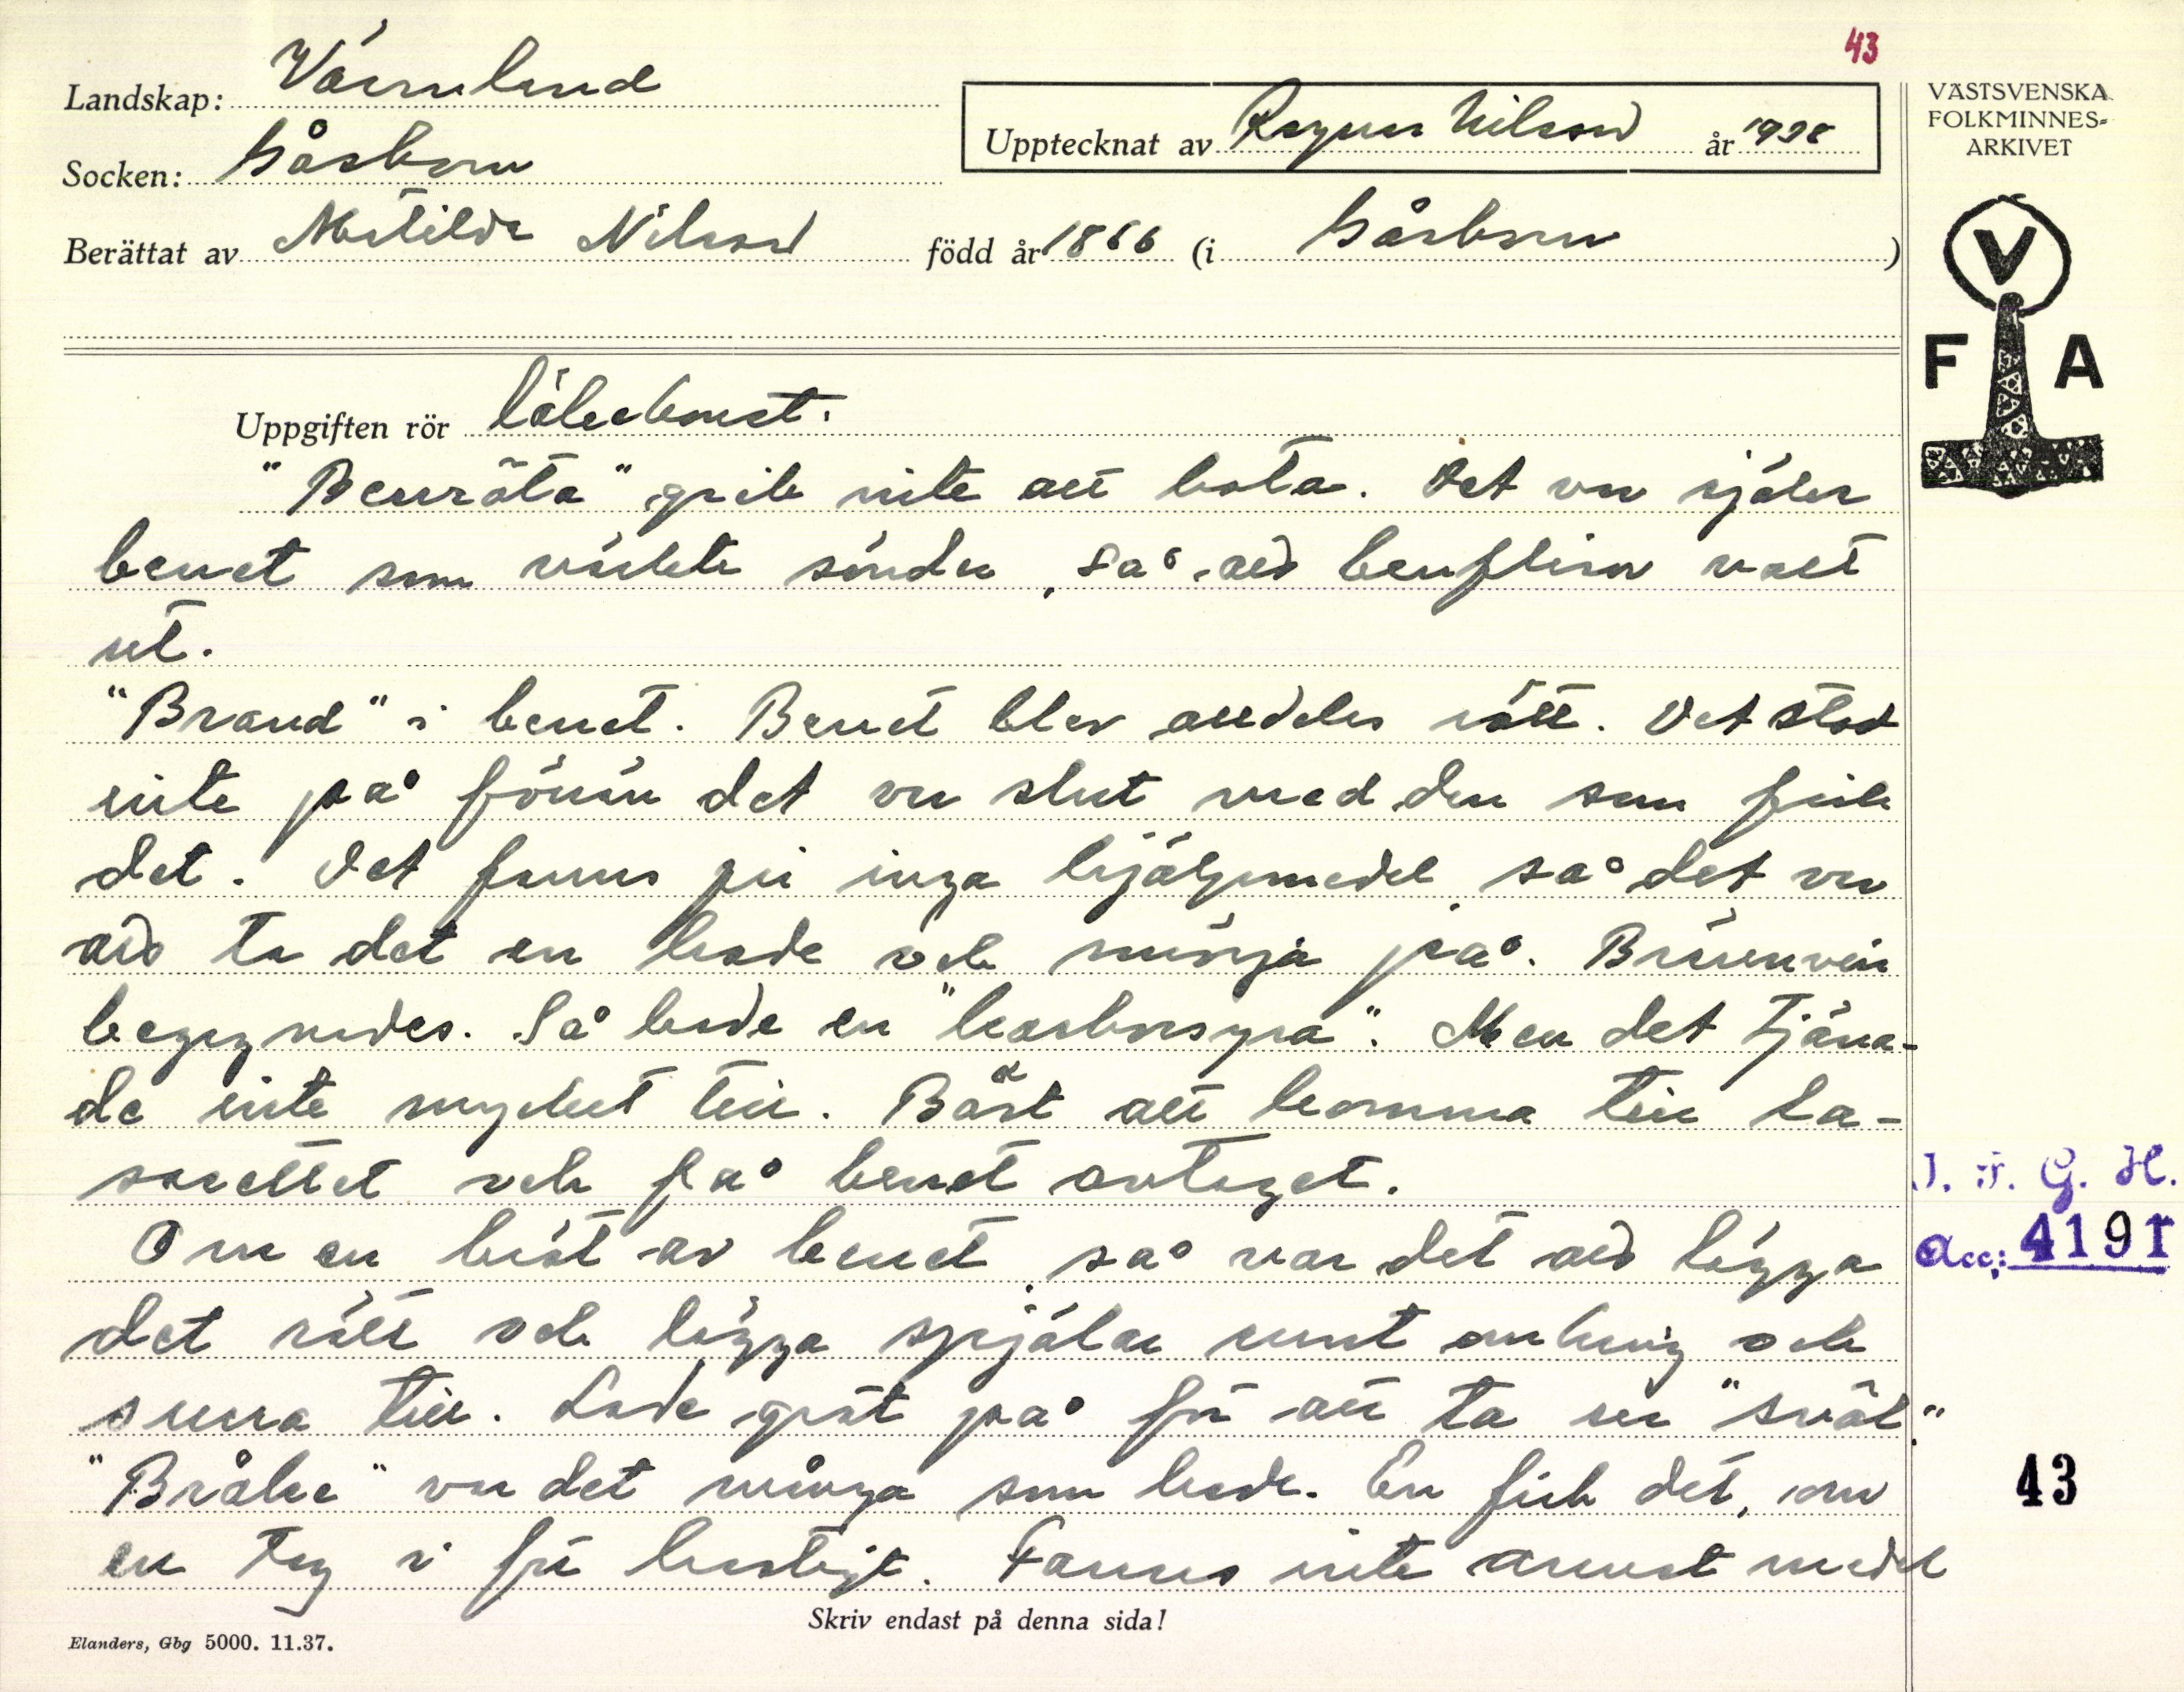 43
Landskap: Värmland
Socken: Gåsborn
Upptecknat av Ragnar Nilsson år 1938
Berättat av Matilda Nilsson född år 1866 (i Gåsborn)
VÄSTSVENSKA
FOLKMINNES-
ARKIVET
V
F A
Uppgiften rör läkekonst.
"Benröta" gick inte att bota. Det var själva
benet som värkte sönder, så att benflisor vatt
ut.
"Brand" i benet. Benet blev alldeles rött. Det stod
inte på förrän det var slut med den som fick
det. Det fanns ju inga hjälpmedel, så det var
att ta det en hade och smörja på. Brännvin
begagnades. Så hade en "karborsyra". Men det tjäna-
de inte mycket till. Bäst att komma till la-
sarettet och få benet avtaget.
Om en bröt av benet, så var det att lägga
det rätt och lägga spjälar runt omkring och
surra till. Lade gröt på för att ta ur "sväl".
"Bråke" var det många som hade. En fick det, om
en tog i för hastigt. Fanns inte annat medel
J. F. G. H.
Acc: 4191
43
Skriv endast på denna sida!
Elanders, Gbg 5000. 11.37.